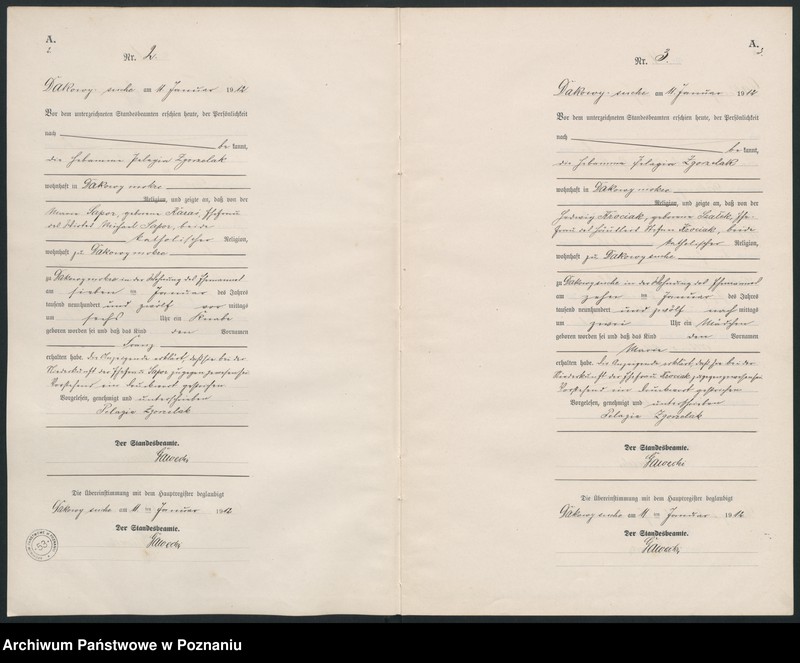 A.
2.
Nr. 2.
Dakowy suche am 11. Januar 1912
Vor dem unterzeichneten Standesbeamten erschien heute, der Persönlichkeit
nach
be kannt,
die Hebamme Pelagia Zgorzelak
wohnhaft in Dakowy mokre
Religion, und zeigte an, daß von der
Maria Sapor, geborene Karas, Ehefrau
des Michael Sapor, beide
katholischer Religion,
wohnhaft zu Dakowy mokre
zu Dakowy mokre in der Wohnung des Ehemannes
am sieben ten Januar des Jahres
tausend neunhundert und zwölf vor mittags
um sechs Uhr ein Knabe
geboren worden sei und daß das Kind den Vornamen
Franz
erhalten habe. Die Anzeigende erklärt, daß sie bei der
Niederkunft der Ehefrau Sapor zugegen gewesen sei
Vorstehend ein Druckwort gestrichen
Vorgelesen, genehmigt und unterschrieben
Pelagia Zgorzelak
Der Standesbeamte.
Gawecki
Die Übereinstimmung mit dem Hauptregister beglaubigt
Dakowy suche am 11 ten Januar 1912
Der Standesbeamte.
Gawecki
A.
3.
Nr. 3.
Dakowy suche am 11 Januar 1912
Vor dem unterzeichneten Standesbeamten erschien heute, der Persönlichkeit
nach
be kannt,
die Hebamme Pelagia Zgorzelak
wohnhaft in Dakowy mokre
Religion, und zeigte an, daß von der
Hedwig geborene Ehe-
frau des Stefan beide
katholischer Religion,
wohnhaft zu Dakowy suche
zu Dakowy suche in der Wohnung des Ehemannes
am zehn ten Januar des Jahres
tausend neunhundert und zwölf nach mittags
um zwei Uhr ein Mädchen
geboren worden sei und daß das Kind den Vornamen
Maria
erhalten habe. Die Anzeigende erklärt, daß sie bei der
Niederkunft der Ehefrau zugegen gewesen sei
Vorstehend ein Druckwort gestrichen
Vorgelesen, genehmigt und unterschrieben
Pelagia Zgorzelak
Der Standesbeamte.
Gawecki
Die Übereinstimmung mit dem Hauptregister beglaubigt
Dakowy suche am 11 ten Januar 1912
Der Standesbeamte.
Gawecki
Archiwum Państwowe w Poznaniu